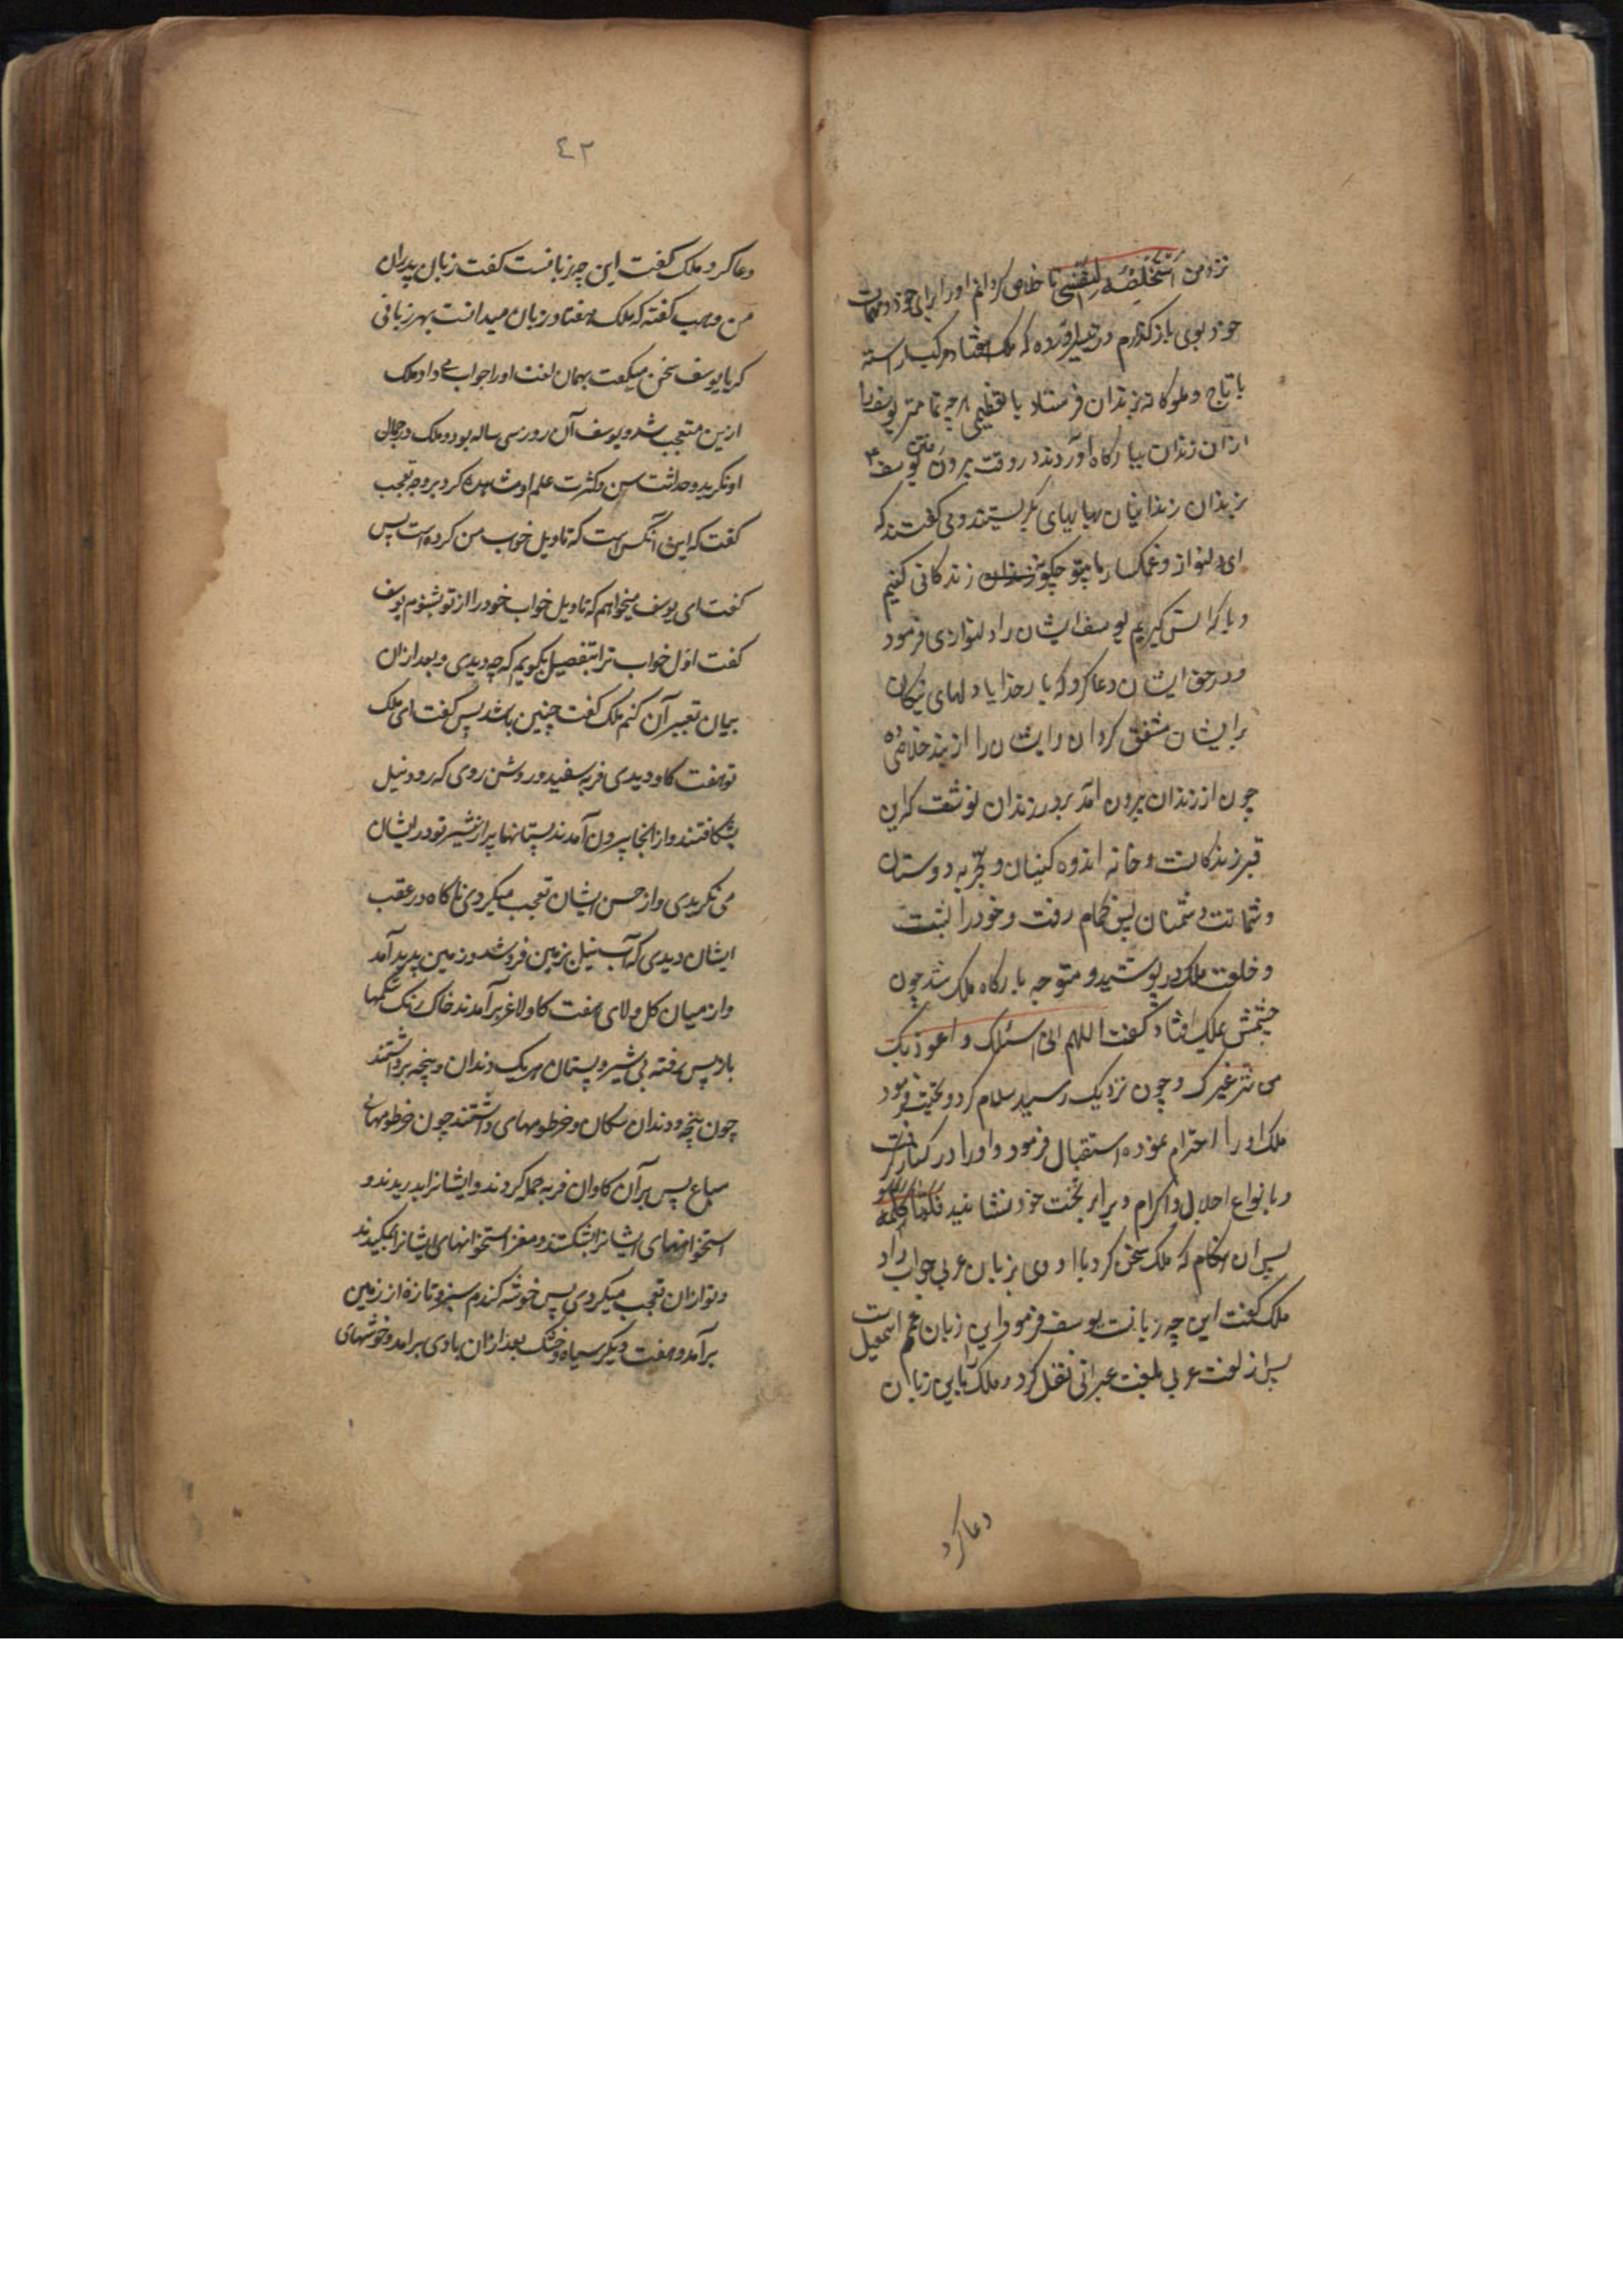 نزد من اَسْتَخْلِصْهُ لِنَفْسِی تا خلاص کردانم او را برای خود و مهمات
خود بوی باز کذارم و در تیسیر آورده که ملک هفتاد مرکب آراسته
با تاج و ملوکانه بزندان فرستاد با تعظیمی هر چه تمامتر یوسف را
ازان زندان ببارکاه آوردند در وقت بیرون رفتن یوسف
بزندان زندانیان بهایهای بکریستند و می کفتند که
ای دلنواز و غمکسار ما بیتو چکونه زندکانی کنیم
و با که انس کیریم یوسف ایشان را دلنوازی فرمود
و در حق ایشان دعا کرد که بار خدایا دلهای نیکان
بر ایشان مشفق کردان و ایشان را از بند خلاصی ده
چون از زندان بیرون آمد بر در زندان نوشت که این
قبر زندکانست و خانه اندوه کنیان و تجربه دوستان
و شماتت دشمنان پس بحمام رفت و خود را بشست
و خلعت ملک در پوشید و متوجه بارکاه ملک شد چون
چشمش بملک افتاد کفت اللهم انی اسئلک و اعوذ بک
من شر غیرک و چون نزدیک رسید سلام کرد و تحیت فرمود
ملک او را احترام نموده استقبال فرمود و او را در کنار کرفت
و بانواع اجلال و اکرام ویرا بر تخت خود نشانید فلما کلمه
پس آن هنکام که ملک سخن کرد با او وی بزبان عربی جواب داد
ملک کفت این چه زبانست یوسف فرمود این زبان عمم اسمعیل است
پس از لغت عربی بلغت عبرانی نقل کرد و ملک را باین زبان
دعا کرد
٤٢
دعا کرد ملک کفت این چه زبانست کفت زبان پدران
من وهب کفته که ملک هفتاد زبان میدانست بهر زبانی
که با یوسف سخن میکفت بهمان لغت او را جواب می داد ملک
ازین متعجب شد و یوسف آن روز سی ساله بود و ملک در جمال
او نکرید و حداثت سن و کثرت علم او مشاهده کرد بر وجه تعجب
کفت که این آنکس است که تاویل خواب من کرده است پس
کفت ای یوسف میخواهم که تاویل خواب خود را از تو بشنوم یوسف
کفت اول خواب ترا بتفصیل بکویم که چه دیدی و بعد ازان
بیان تعبیر آن کنم ملک کفت چنین باشد پس کفت ای ملک
تو هفت کاو دیدی فربه سفید و روشن روی که رود نیل
بشکافتند و از انجا بیرون آمدند پستانها پر از شیر تو در ایشان
می نکریدی و از حسن ایشان تعجب میکردی ناکاه در عقب
ایشان دیدی که آب نیل بزمین فرو شد و زمین پدید آمد
و از میان کل و لای هفت کاو لاغر برآمدند خاک رنک شکمها
باز پس رفته بی شیر و پستان هر یک دندان و پنجه برداشتند
چون پنجه و دندان سکان و خرطومهای داشتند چون خرطومهای
سباع پس بر آن کاوان فربه حمله کردند و ایشانرا بدریدند و
استخوانهای ایشانرا بشکستند و مغز استخوانهای ایشانرا بمکیدند
و تو ازان تعجب میکردی پس خوشه کندم سبز و تازه از زمین
برآمد و هفت دیکر سیاه و خشک بعد ازان بادی برامد و خوشهای